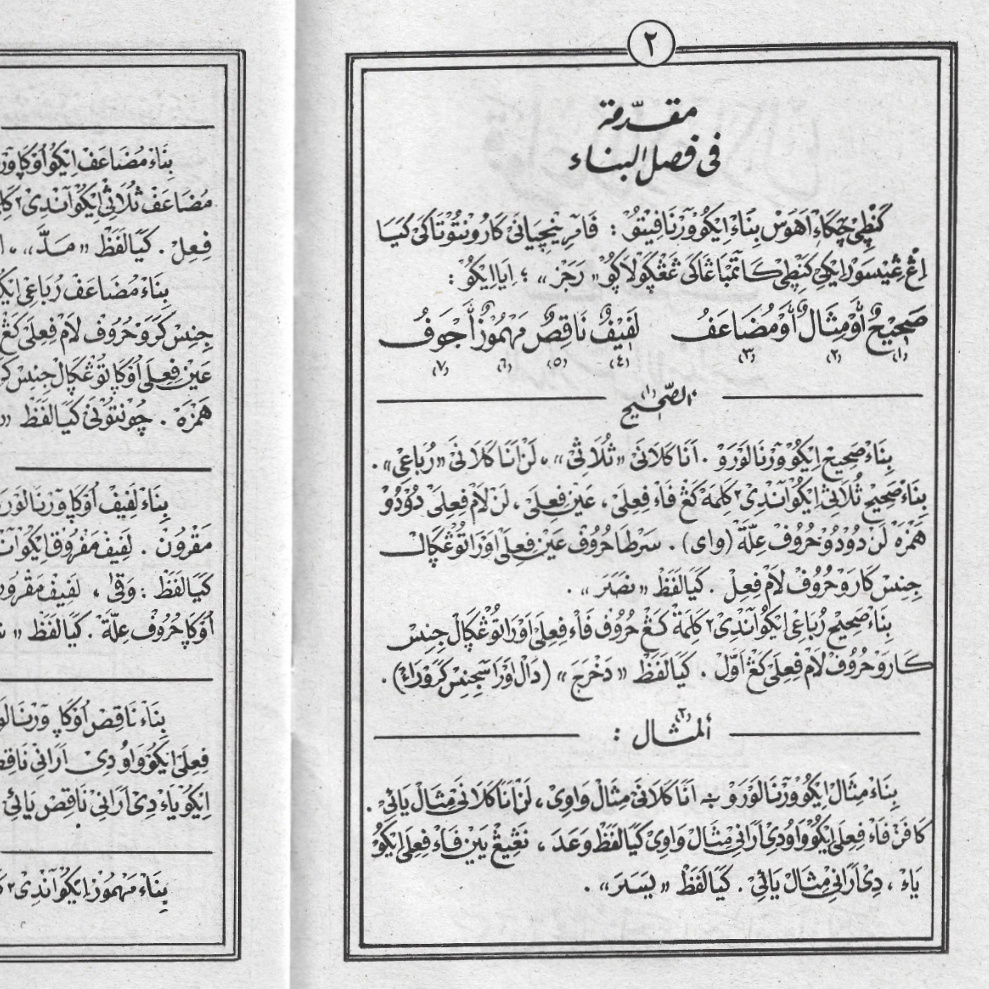 ٢
مقدّمة
فى فصل البناء
كڠطي چكاء اهوس بناء ايكو ورنا فيتو :
اع ڠيسور ايكى كڠطي « رجز » ؛ ايا ايكو :
صَحِيْحٌ أَوْ مِثَالٌ أَوْ مُضَاعَفُ لَفِيْفٌ نَاقِصٌ مَهْمُوْزٌ أَجْوَفُ
(١) (٢) (٣) (٤) (٥) (٦) (٧)
(١) الصّحيح
بِنَاءْ صَحِيْح اِيْكُوْ وَرْنَا لَوْرَوْ . اَنَا كَلَانَىْ « ثُلَاثِىْ » ، لَنْ اَنَا كَلَانَىْ « رُبَاعِىْ » .
بِنَاءْ صَحِيْح ثُلَاثِىْ اِيْكُوْ اَنْدِىْ٢ كَلِمَةْ كَڠْ فَاءْ فِعِلَىْ ، عَيْن فِعِلَىْ ، لَنْ لَامْ فِعِلَىْ دُوْدُوْ
هَمْزَهْ لَنْ دُوْدُوْ حُرُوْف عِلَّةْ (واى) . سَرْطَا حُرُوْف عَيْن فِعِلَىْ اَوْرَا تُوْڠْكَالْ
جِنِسْ كَارَوْ حُرُوْف لَامْ فِعِلْ . كَيَا لَفَظْ « نَصَرَ » .
بِنَاءْ صَحِيْح رُبَاعِىْ اِيْكُوْ اَنْدِىْ٢ كَلِمَةْ كَڠْ حُرُوْف فَاءْ فِعِلَىْ اَوْرَا تُوْڠْكَالْ جِنِسْ
كَارَوْ حُرُوْف لَامْ فِعِلَىْ كَڠْ اَوَّلْ . كَيَا لَفَظْ « دَخْرَجَ » (دَالْ اَوْرَا سَجِنِسْ كَرَوْ رَاءْ) .
(٢) المثال :
بِنَاءْ مِثَالْ اِيْكُوْ وَرْنَا لَوْرَوْ ÷ اَنَا كَلَانَىْ مِثَالْ وَاوِىْ ، لَنْ اَنَا كَلَانَىْ مِثَالْ يَائِىْ .
فَاءْ فِعِلَىْ اِيْكُوْ وَاوُ دِىْ اَرَانِىْ مِثَالْ وَاوِىْ كَيَا لَفَظْ وَعَدَ ، نَڠِيْڠْ يَيْن فَاءْ فِعِلَىْ اِيْكُوْ
يَاءْ ، دِىْ اَرَانِىْ مِثَالْ يَائِىْ . كَيَا لَفَظْ « يَسَرَ » .
بِنَاءْ مُضَاعَفْ اِيْكُوْ اُوْكَا
مُضَاعَفْ ثُلَاثِىْ اِيْكُوْ اَنْدِىْ٢
فِعِلْ . كَيَا لَفَظْ « مَدَّ » ،
بِنَاءْ مُضَاعَفْ رُبَاعِىْ
جِنِسْ كَرَوْ حُرُوْف لَامْ فِعِلَىْ كَڠْ
عَيْن فِعِلَىْ اُوْكَا تُوْڠْكَالْ جِنِسْ
هَمْزَهْ . چَوْنْتَوْنَىْ كَيَا لَفَظْ
بِنَاءْ لَفِيْفْ اُوْكَا وَرْنَا لَوْرَوْ
مَقْرُوْن . لَفِيْفْ مَفْرُوْق اِيْكُوْ
كَيَا لَفَظْ : وَقَى ، لَفِيْفْ مَقْرُوْن
اُوْكَا حُرُوْف عِلَّةْ . كَيَا لَفَظْ
بِنَاءْ نَاقِصْ اُوْكَا وَرْنَا
فِعِلَىْ اِيْكُوْ وَاوُ دِىْ اَرَانِىْ
اِيْكُوْ يَاءْ دِىْ اَرَانِىْ نَاقِصْ يَائِىْ
بِنَاءْ مَهْمُوْز اِيْكُوْ اَنْدِىْ٢